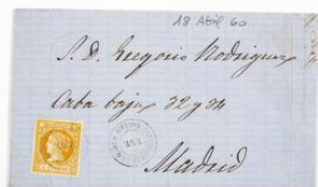 18 Abril 60
S. D. Gregorio Rodriguez
Caba baja 32 y 34
Madrid